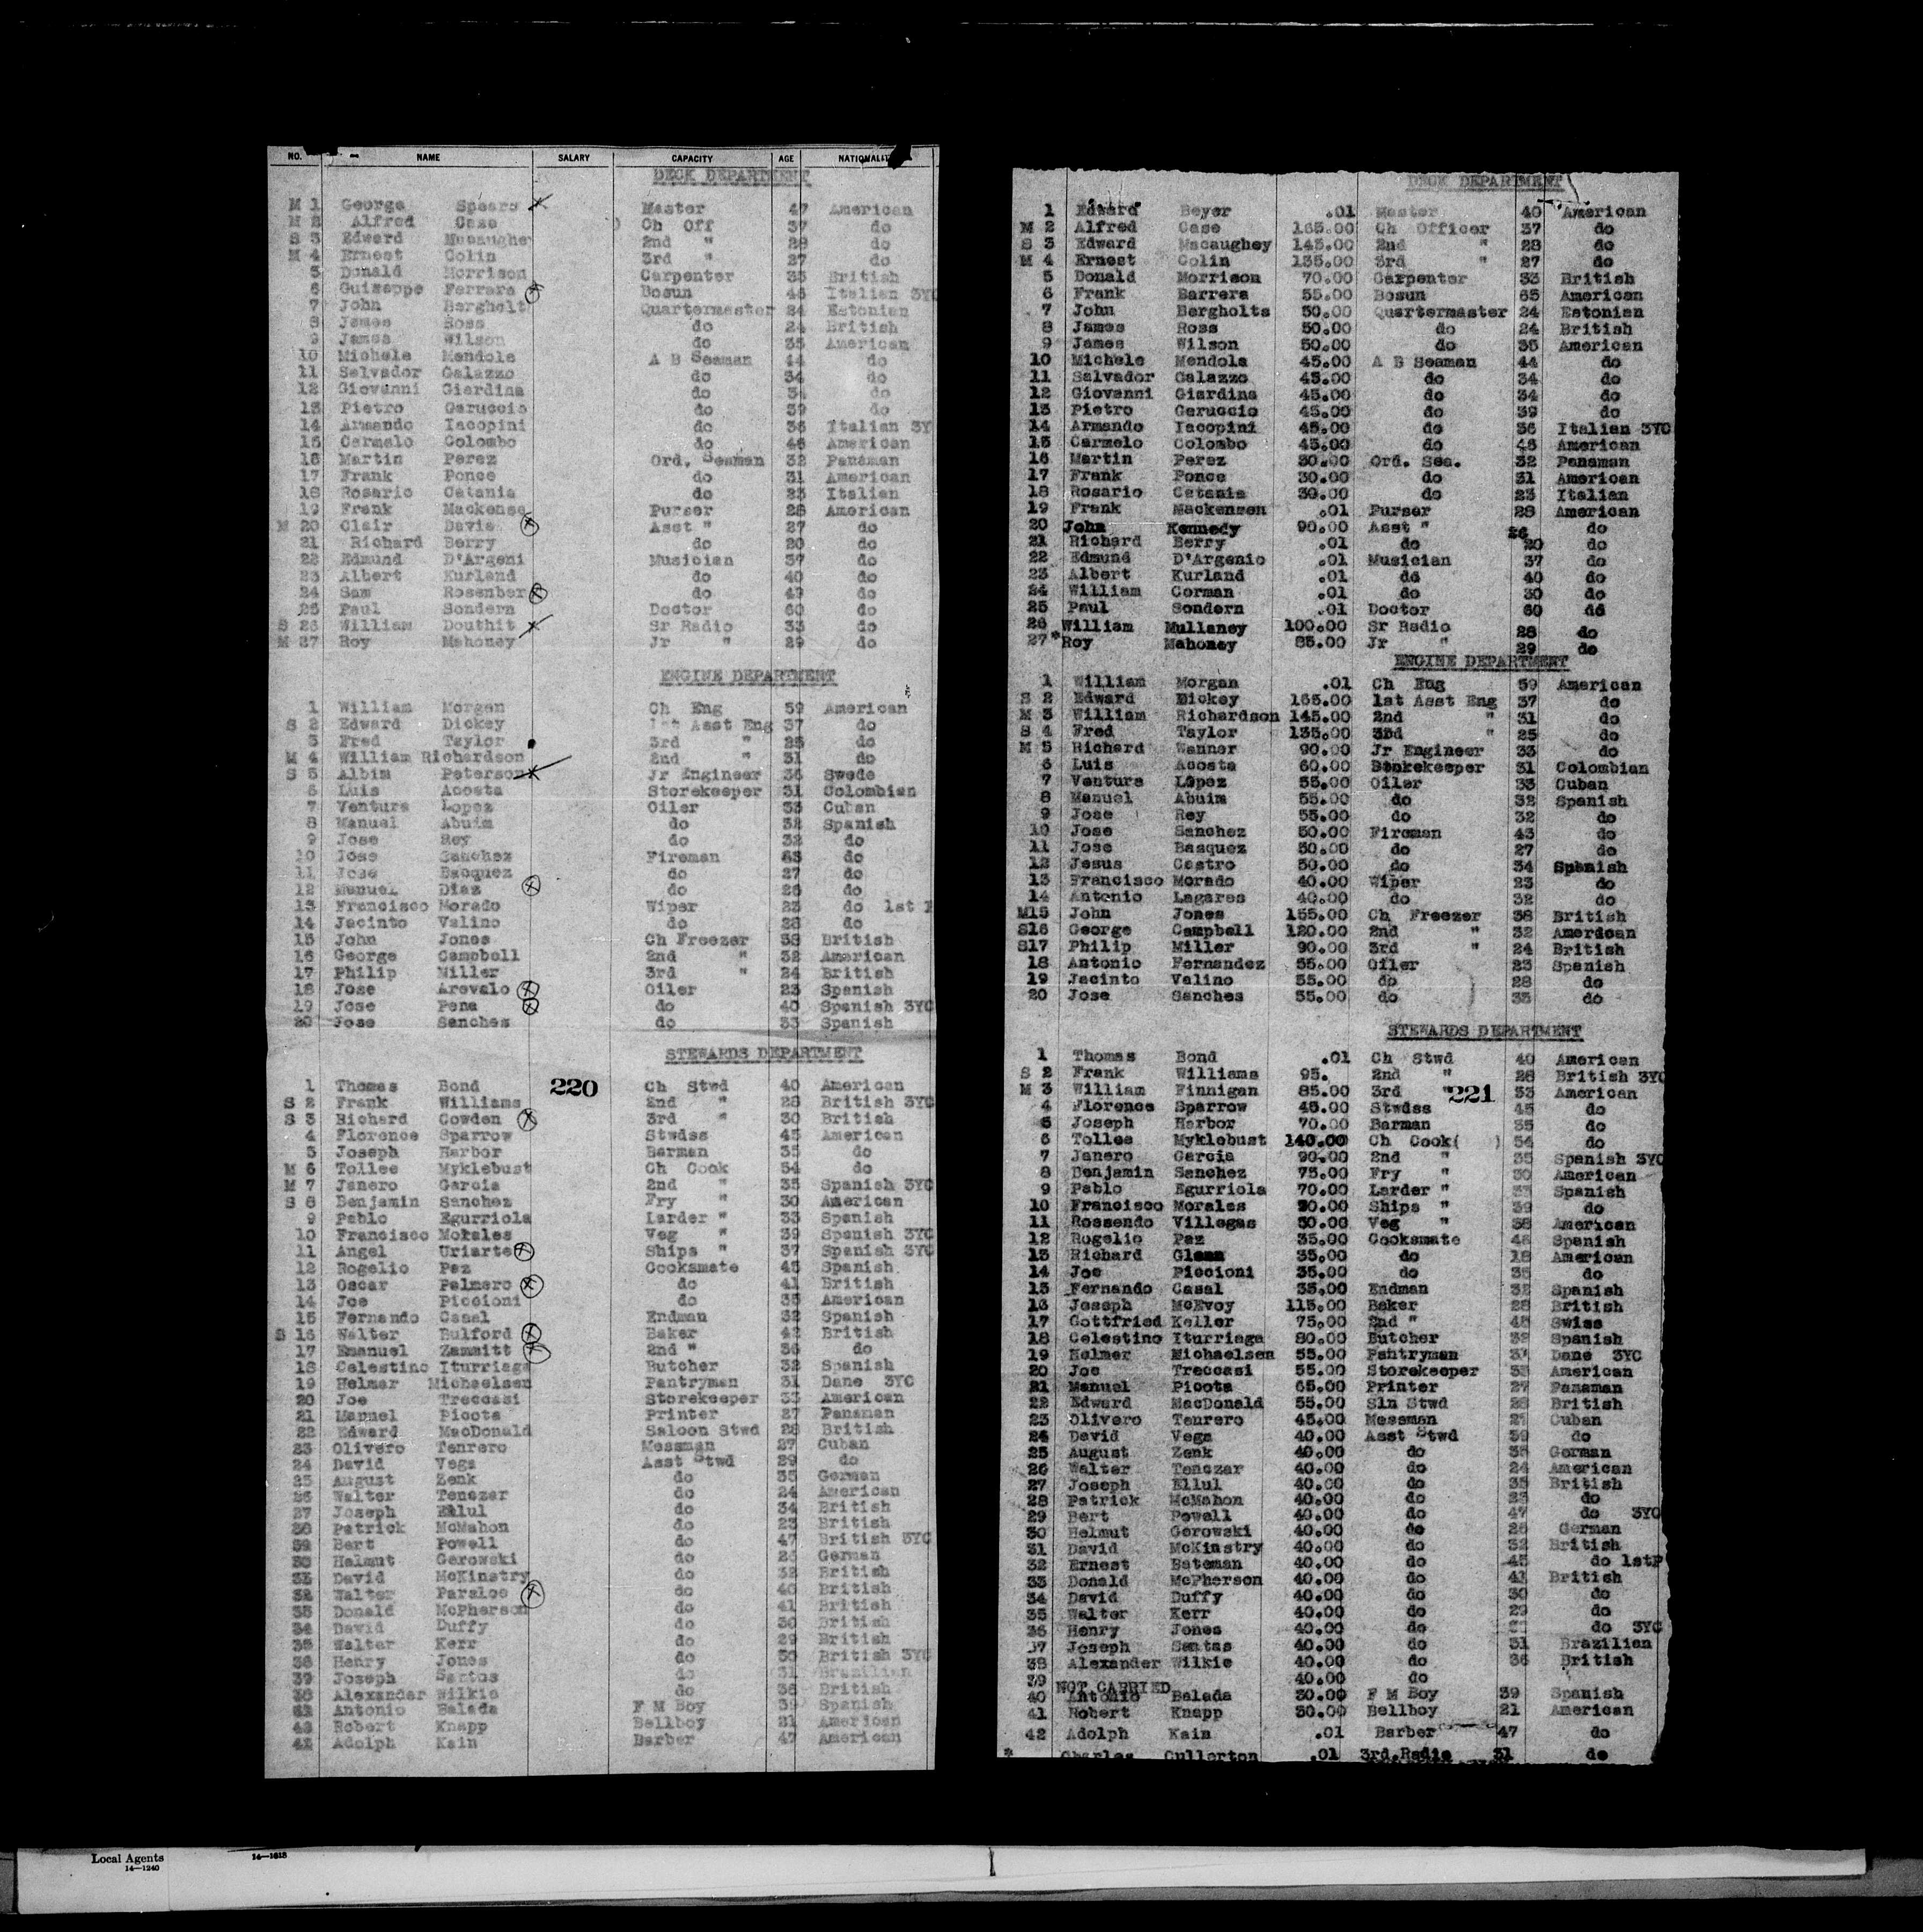 NO. NAME SALARY CAPACITY AGE
DECK DEPARTMENT
M 1 George Spears Master 47 American
M 2 Alfred Case Ch Off 37 do
S 3 Edward Macaughe 2nd " 28 do
M 4 Ernest Colin 3rd " 27 do
5 Donald Morrison Carpenter 33 British
6 Guiseppe Ferrera Bosun 46 Italian 3YC
7 John Bergholt Quartermaster 24 Estonian
8 James Ross do 24 British
9 James Wilson do 35 American
10 Michele Mendola A B Seaman 44 do
11 Salvador Galazzo do 34 do
12 Giovanni Giardina do 34 do
13 Pietro Caruccio do 39 do
14 Armando Iacopini do 36 Italian 3Y
15 Carmelo Colombo do 46 American
16 Martin Perez Ord. Seaman 32 Panaman
17 Frank Ponce do 31 American
18 Rosario Catania do 23 Italian
19 Frank Mackense Purser 28 American
M 20 Clair Davis Asst " 27 do
21 Richard Berry do 20 do
22 Edmund D'Argeni Musician 37 do
23 Albert Kurland do 40 do
24 Sam Rosenber do 49 do
25 Paul Sondern Doctor 60 do
S 26 William Douthit Sr Radio 33 do
M 27 Roy Mahoney Jr " 29 do
ENGINE DEPARTMENT
1 William Morgan Ch Eng 59 American
S 2 Edward Dickey 1st Asst Eng 37 do
3 Fred Taylor 3rd " 25 do
M 4 William Richardson 2nd " 31 do
S 5 Albim Peterson Jr Engineer 36 Swede
6 Luis Acosta Storekeeper 31 Colombian
7 Ventura Lopez Oiler 33 Cuban
8 Manuel Abuim do 32 Spanish
9 Jose Rey do 32 do
10 Jose Sanchez Fireman do
11 Jose Basquez do 27 do
12 Manuel Diaz do 26 do
13 Francisco Morado Wiper 23 do 1st P
14 Jacinto Valino do 28 do
15 John Jones Ch Freezer 38 British
16 George Campbell 2nd " 32 American
17 Philip Miller 3rd " 24 British
18 Jose Arevalo Oiler 23 Spanish
19 Jose Pena do 40 Spanish 3YC
20 Jose Sanches do 33 Spanish
STEWARDS DEPARTMENT
1 Thomas Bond 220 Ch Stwd 40 American
S 2 Frank Williams 2nd " 28 British 3YC
S 3 Richard Cowden 3rd " 30 British
4 Florence Sparrow Stwdss 45 American
5 Joseph Harbor Barman 35 do
M 6 Tollee Myklebust Ch Cook 54 do
M 7 Janero Garcia 2nd " 35 Spanish 3YC
S 8 Benjamin Sanchez Fry " 30 American
9 Pablo Egurriola Larder " 33 Spanish
10 Francisco Morales Veg " 39 Spanish 3YC
11 Angel Uriarte Ships " 37 Spanish 3YC
12 Rogelio Paz Cooksmate 45 Spanish
13 Oscar Palmero do 41 British
14 Joe Piccioni do 35 American
15 Fernando Casal Endman 32 Spanish
S 16 Walter Bulford Baker 42 British
17 Emanuel Zammitt 2nd " 36 do
18 Celestino Iturriaga Butcher 32 Spanish
19 Helmer Michaelsen Pantryman 31 Dane 3YC
20 Joe Treccasi Storekeeper 33 American
21 Manuel Picota Printer 27 Panaman
22 Edward MacDonald Saloon Stwd 28 British
23 Olivero Tenrero Messman 27 Cuban
24 David Vega Asst Stwd 29 do
25 August Zenk do 35 German
26 Walter Tenczar do 24 American
27 Joseph Ellul do 34 British
28 Patrick McMahon do 23 British
29 Bert Powell do 47 British 3YC
30 Helmut Gerowski do 26 German
David McKinstry do 32 British
32 Walter Parsloe do 46 British
33 Donald McPherson do 41 British
34 David Duffy do 30 British
35 Walter Kerr do 29 British
36 Henry Jones do 50 British 3YC
Joseph Santos do 31 Brazilian
Alexander Wilkie do 36 British
Antonio Balada F M Boy 39 Spanish
Robert Knapp Bellboy 21 American
Adolph Kain Barber 47 American
DECK DEPARTMENT
1 Edward Beyer .01 Master 40 American
M 2 Alfred Case 165.00 Ch Officer 37 do
S 3 Edward Macaughey 145.00 2nd " 28 do
M 4 Ernest Colin 135.00 3rd " 27 do
5 Donald Morrison 70.00 Carpenter 33 British
6 Frank Barrera 55.00 Bosun 65 American
7 John Bergholts 50.00 Quartermaster 24 Estonian
8 James Ross 50.00 do 24 British
9 James Wilson 50.00 do 35 American
10 Michele Mendola 45.00 A B Seaman 44 do
11 Salvador Galazzo 45.00 do 34 do
12 Giovanni Giardina 45.00 do 34 do
13 Pietro Caruccio 45.00 do 39 do
14 Armando Iacopini 45.00 do 36 Italian 3YC
15 Carmelo Colombo 45.00 do 46 American
16 Martin Perez 30.00 Ord. Sea. 32 Panaman
17 Frank Ponce 30.00 do 31 American
18 Rosario Catania 30.00 do 23 Italian
19 Frank Mackensen .01 Purser 28 American
20 John Kennedy 90.00 Asst " 26 do
21 Richard Berry .01 do 20 do
22 Edmund D'Argenio .01 Musician 37 do
23 Albert Kurland .01 do 40 do
24 William Gorman .01 do 30 do
25 Paul Sondern .01 Doctor 60 do
26 William Mullaney 100.00 Sr Radio 28 do
27 *Roy Mahoney 85.00 Jr " 29 do
ENGINE DEPARTMENT
1 William Morgan .01 Ch Eng 59 American
S 2 Edward Dickey 165.00 1st Asst Eng 37 do
M 3 William Richardson 145.00 2nd " 31 do
S 4 Fred Taylor 135.00 3rd " 25 do
M 5 Richard Wanner 90.00 Jr Engineer 33 do
6 Luis Acosta 60.00 31 Colombian
7 Ventura Lopez 55.00 Oiler 33 Cuban
8 Manuel Abuim 55.00 do 32 Spanish
9 Jose Rey 55.00 do 32 do
10 Jose Sanchez 50.00 Fireman 43 do
11 Jose Basquez 50.00 do 27 do
12 Jesus Castro 50.00 do 34 Spanish
13 Francisco Morado 40.00 Wiper 23 do
14 Antonio Lagares 40.00 do 32 do
M15 John Jones 155.00 Ch Freezer 38 British
S16 George Campbell 120.00 2nd " 32 American
S17 Philip Miller 90.00 3rd " 24 British
18 Antonio Fernandez 55.00 Oiler 23 Spanish
19 Jacinto Valino 55.00 do 28 do
20 Jose Sanches 55.00 do 33 do
STEWARDS DEPARTMENT
1 Thomas Bond .01 Ch Stwd 40 American
S 2 Frank Williams 95. 2nd " 28 British 3YC
M 3 William Finnigan 85.00 3rd " 221 33 American
4 Florence Sparrow 45.00 Stwdss 45 do
5 Joseph Harbor 70.00 Barman 35 do
6 Tollee Myklebust 140.00 Ch Cook( ) 54 do
7 Janero Garcia 90.00 2nd " 35 Spanish 3YC
8 Benjamin Sanchez 75.00 Fry " 30 American
9 Pablo Egurriola 70.00 Larder " 33 Spanish
10 Francisco Morales Ships " 39 do
11 Rossendo Villegas 50.00 Veg " 38 American
12 Rogelio Paz 35.00 Cooksmate 45 Spanish
13 Richard Glenn 35.00 do 18 American
14 Joe Piccioni 35.00 do 35 do
15 Fernando Casal 35.00 Endman 32 Spanish
16 Joseph McEvoy 115.00 Baker 28 British
17 Gottfried Keller 75.00 2nd " 48 Swiss
18 Celestino Iturriaga 80.00 Butcher 32 Spanish
19 Helmer Michaelsen 55.00 Pantryman 31 Dane 3YC
20 Joe Treccasi 55.00 Storekeeper 33 American
21 Manuel Picota 65.00 Printer 27 Panaman
22 Edward MacDonald 55.00 Sln Stwd 28 British
23 Olivero Tenrero 45.00 Messman 27 Cuban
24 David Vega 40.00 Asst Stwd 39 do
25 August Zenk 40.00 do 35 German
26 Walter Tenczar 40.00 do 24 American
27 Joseph Ellul 40.00 do 35 British
28 Patrick McMahon 40.00 do 23 do
29 Bert Powell 40.00 do 47 do 3YC
30 Helmut Gerowski 40.00 do 26 German
31 David McKinstry 40.00 do 32 British
32 Ernest Bateman 40.00 do 45 do 1stP
33 Donald McPherson 40.00 do 41 British
34 David Duffy 40.00 do 30 do
35 Walter Kerr 40.00 do 29 do
36 Henry Jones 40.00 do do 3YC
37 Joseph Santas 40.00 do 31 Brazilian
38 Alexander Wilkie 40.00 do 36 British
39 NOT CARRIED 40.00 do
40 Antonio Balada 30.00 F M Boy 39 Spanish
41 Robert Knapp 30.00 Bellboy 21 American
42 Adolph Kain .01 Barber 47 do
* Charles Cullerton .01 3rd.Radio 31 do
Local Agents
14—1240
14—1618